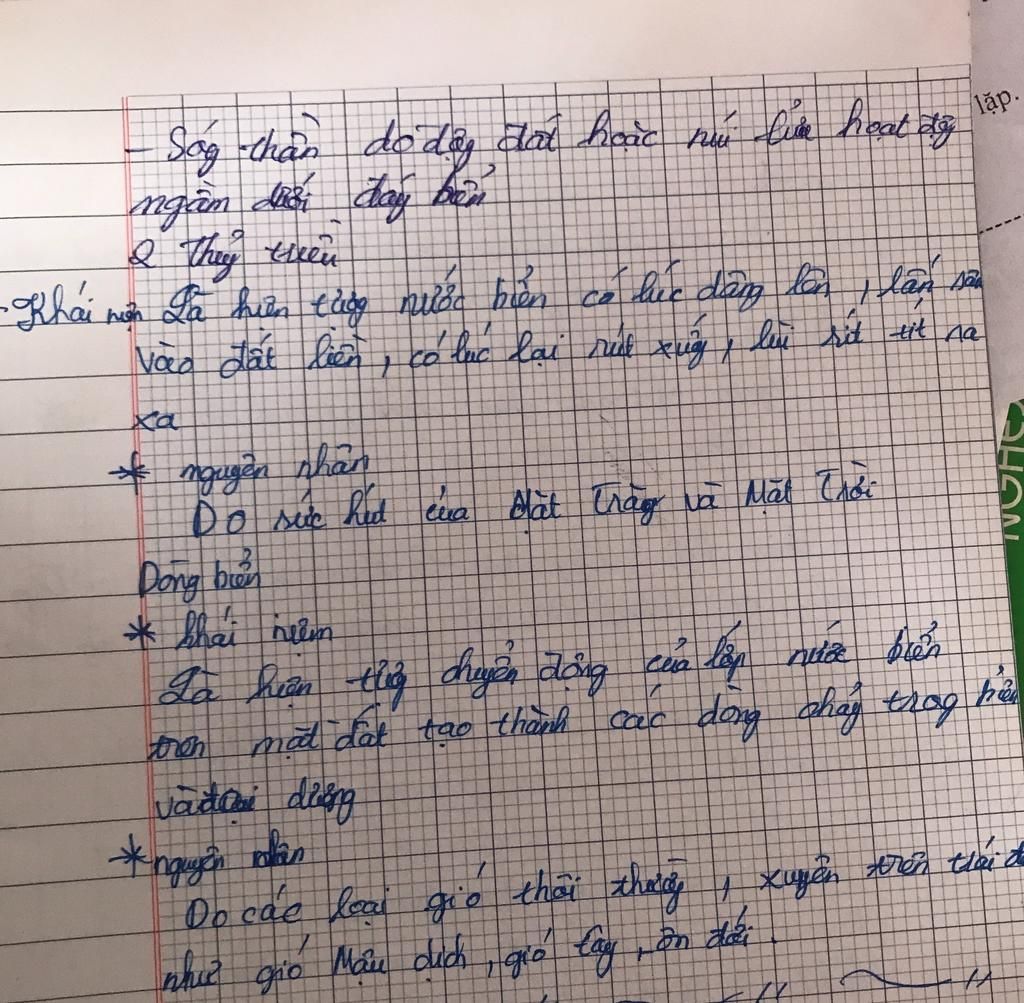 lặp.
- Sóg thần do dộg đất hoặc núi lửa hoạt độg
ngầm dưới đáy biển
2 Thuỷ triều
- Khái niện Là hiện tượg nước biển có lúc dâng lên, lấn sâu
vào đất liền, có lúc lại rút xuốg, lùi tít ra
xa
* nguyên nhân
Do sức hút của Mặt Trăng và Mặt Trời
Dòng biển
* khái niệm
Là hiện tượg chuyển động của lớp nước biển
trên mặt đất tạo thành các dòng chảy trog biển
và đại dương
* nguyên nhân
Do các loại gió thổi thườg, xuyên trên trái đ
như gió Mậu dịch, gió tây, ôn đới.
NGHE